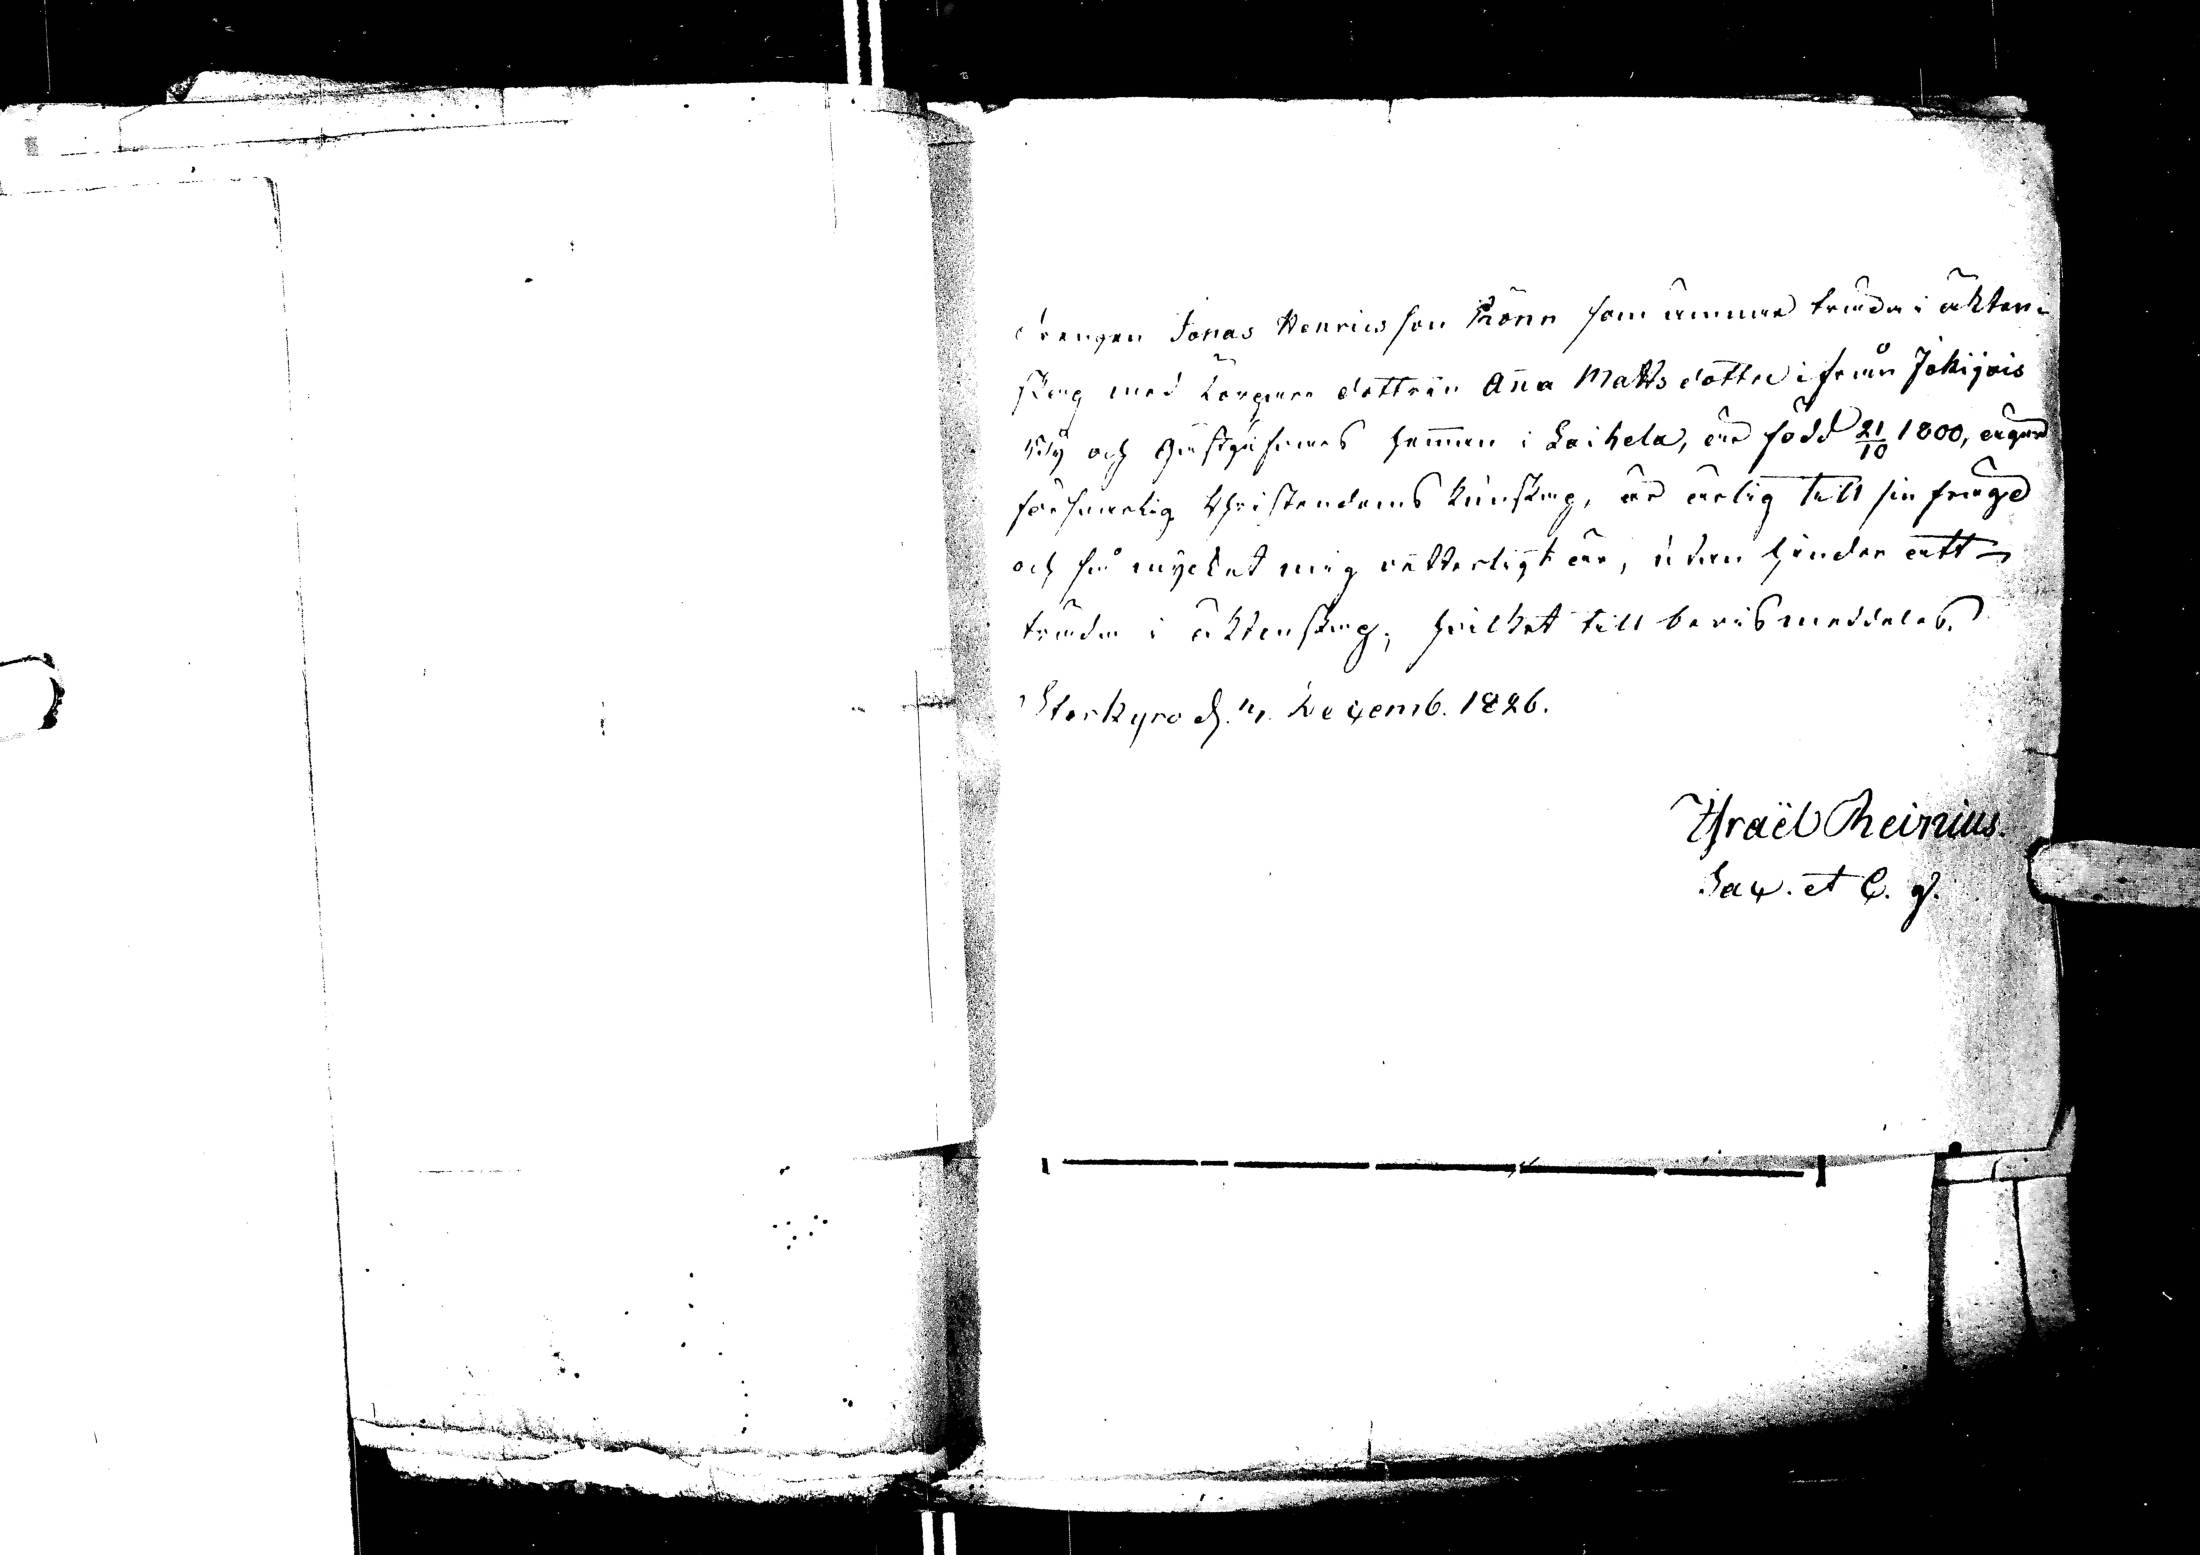 Drengen Jonas Henricsson Rönn som ämnar träda i äkten-
skap med Torpare dottren Aña Mattsdotter ifrån Jokipis
By och Gästgifvars heman i Laihela, är född 21/10 1800, eger
försvarlig Christendoms kunskap, är ärlig till sin frägd
och så mycket mig vetterligt är, utan hinder att
träda i äktenskap, hvilket till bevis meddelas.
Storkyro d. Decemb. 1826.
Israël Reinius.
Sac. et C. g.